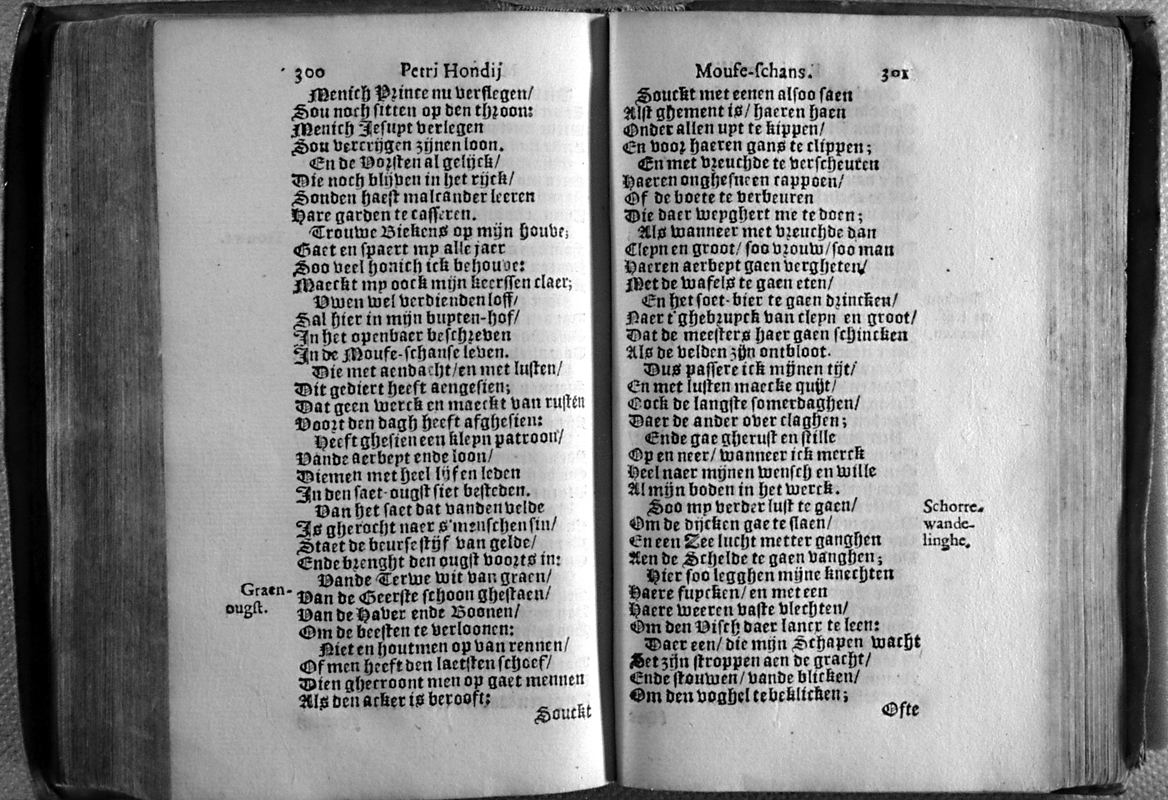 300 Petri Hondij
Menich Prince nu verslegen/
Sou noch sitten op den throon:
Menich Jesuyt verlegen
Sou vercrijgen zijnen loon.
En de Vorsten al gelijck/
Die noch blijven in het rijck/
Sonden haest malcander leeren
Hare garden te casseren.
Trouwe Biekens op mijn houve;
Gaet en spaert my alle jaer
Soo veel honich ick behouve:
Maeckt my oock mijn keerssen claer;
Uwen wel verdienden loff/
Sal hier in mijn buyten-hof/
In het openbaer beschreven
In de Moufe-schanse leven.
Die met aendacht/en met lusten/
Dit gediert heeft aengesien;
Dat geen werck en maeckt van rusten
Voort den dagh heeft afghesien:
Heeft ghesien een kleyn patroon/
Vande aerbeyt ende loon/
Diemen met heel lijf en leden
In den saet-ougst siet besteden.
Van het saet dat vanden velde
Is gherocht naer s'menschen sin/
Staet de beurse stijf van gelde/
Ende brenght den ougst voorts in:
Vande Terwe wit van graen/
Van de Geerste schoon ghestaen/
Van de Haver ende Boonen/
Om de beesten te verloonen:
Niet en houtmen op van rennen/
Of men heeft den laetsten schoef/
Dien ghecroont men op gaet mennen
Als den acker is berooft:
Souckt
Graen-
ougst.
Moufe-schans. 301
Souckt met eenen alsoo saen
Alst ghement is/ haeren haen
Onder allen uyt te kippen/
En voor haeren gans te clippen;
En met vreuchde te verscheuten
Haeren onghesneen cappoen/
Of de boete te verbeuren
Die daer weyghert me te doen;
Als wanneer met vreuchde dan
Cleyn en groot/ soo vrouw/ soo man
Haeren aerbeyt gaen vergheten/
Met de wafels te gaen eten/
En het soet-bier te gaen drincken/
Naer t'ghebruyck van cleyn en groot/
Dat de meesters haer gaen schincken
Als de velden zijn ontbloot.
Dus passere ick mijnen tijt/
En met lusten maecke quijt/
Oock de langste somerdaghen/
Daer de ander over claghen;
Ende gae gherust en stille
Op en neer/ wanneer ick merck
Heel naer mijnen wensch en wille
Al mijn boden in het werck.
Soo my verder lust te gaen/
Om de dijcken gae te slaen/
En een Zee lucht metter ganghen
Aen de Schelde te gaen vanghen;
Hier soo legghen mijne knechten
Haere fuycken/ en met een
Haere weeren vaste vlechten/
Om den Visch daer lancx te leen:
Daer een/ die mijn Schapen wacht
Set zijn stroppen aen de gracht/
Ende stouwen/ vande blicken/
Om den voghel te beklicken;
Ofte
Schorre.
wande-
linghe.